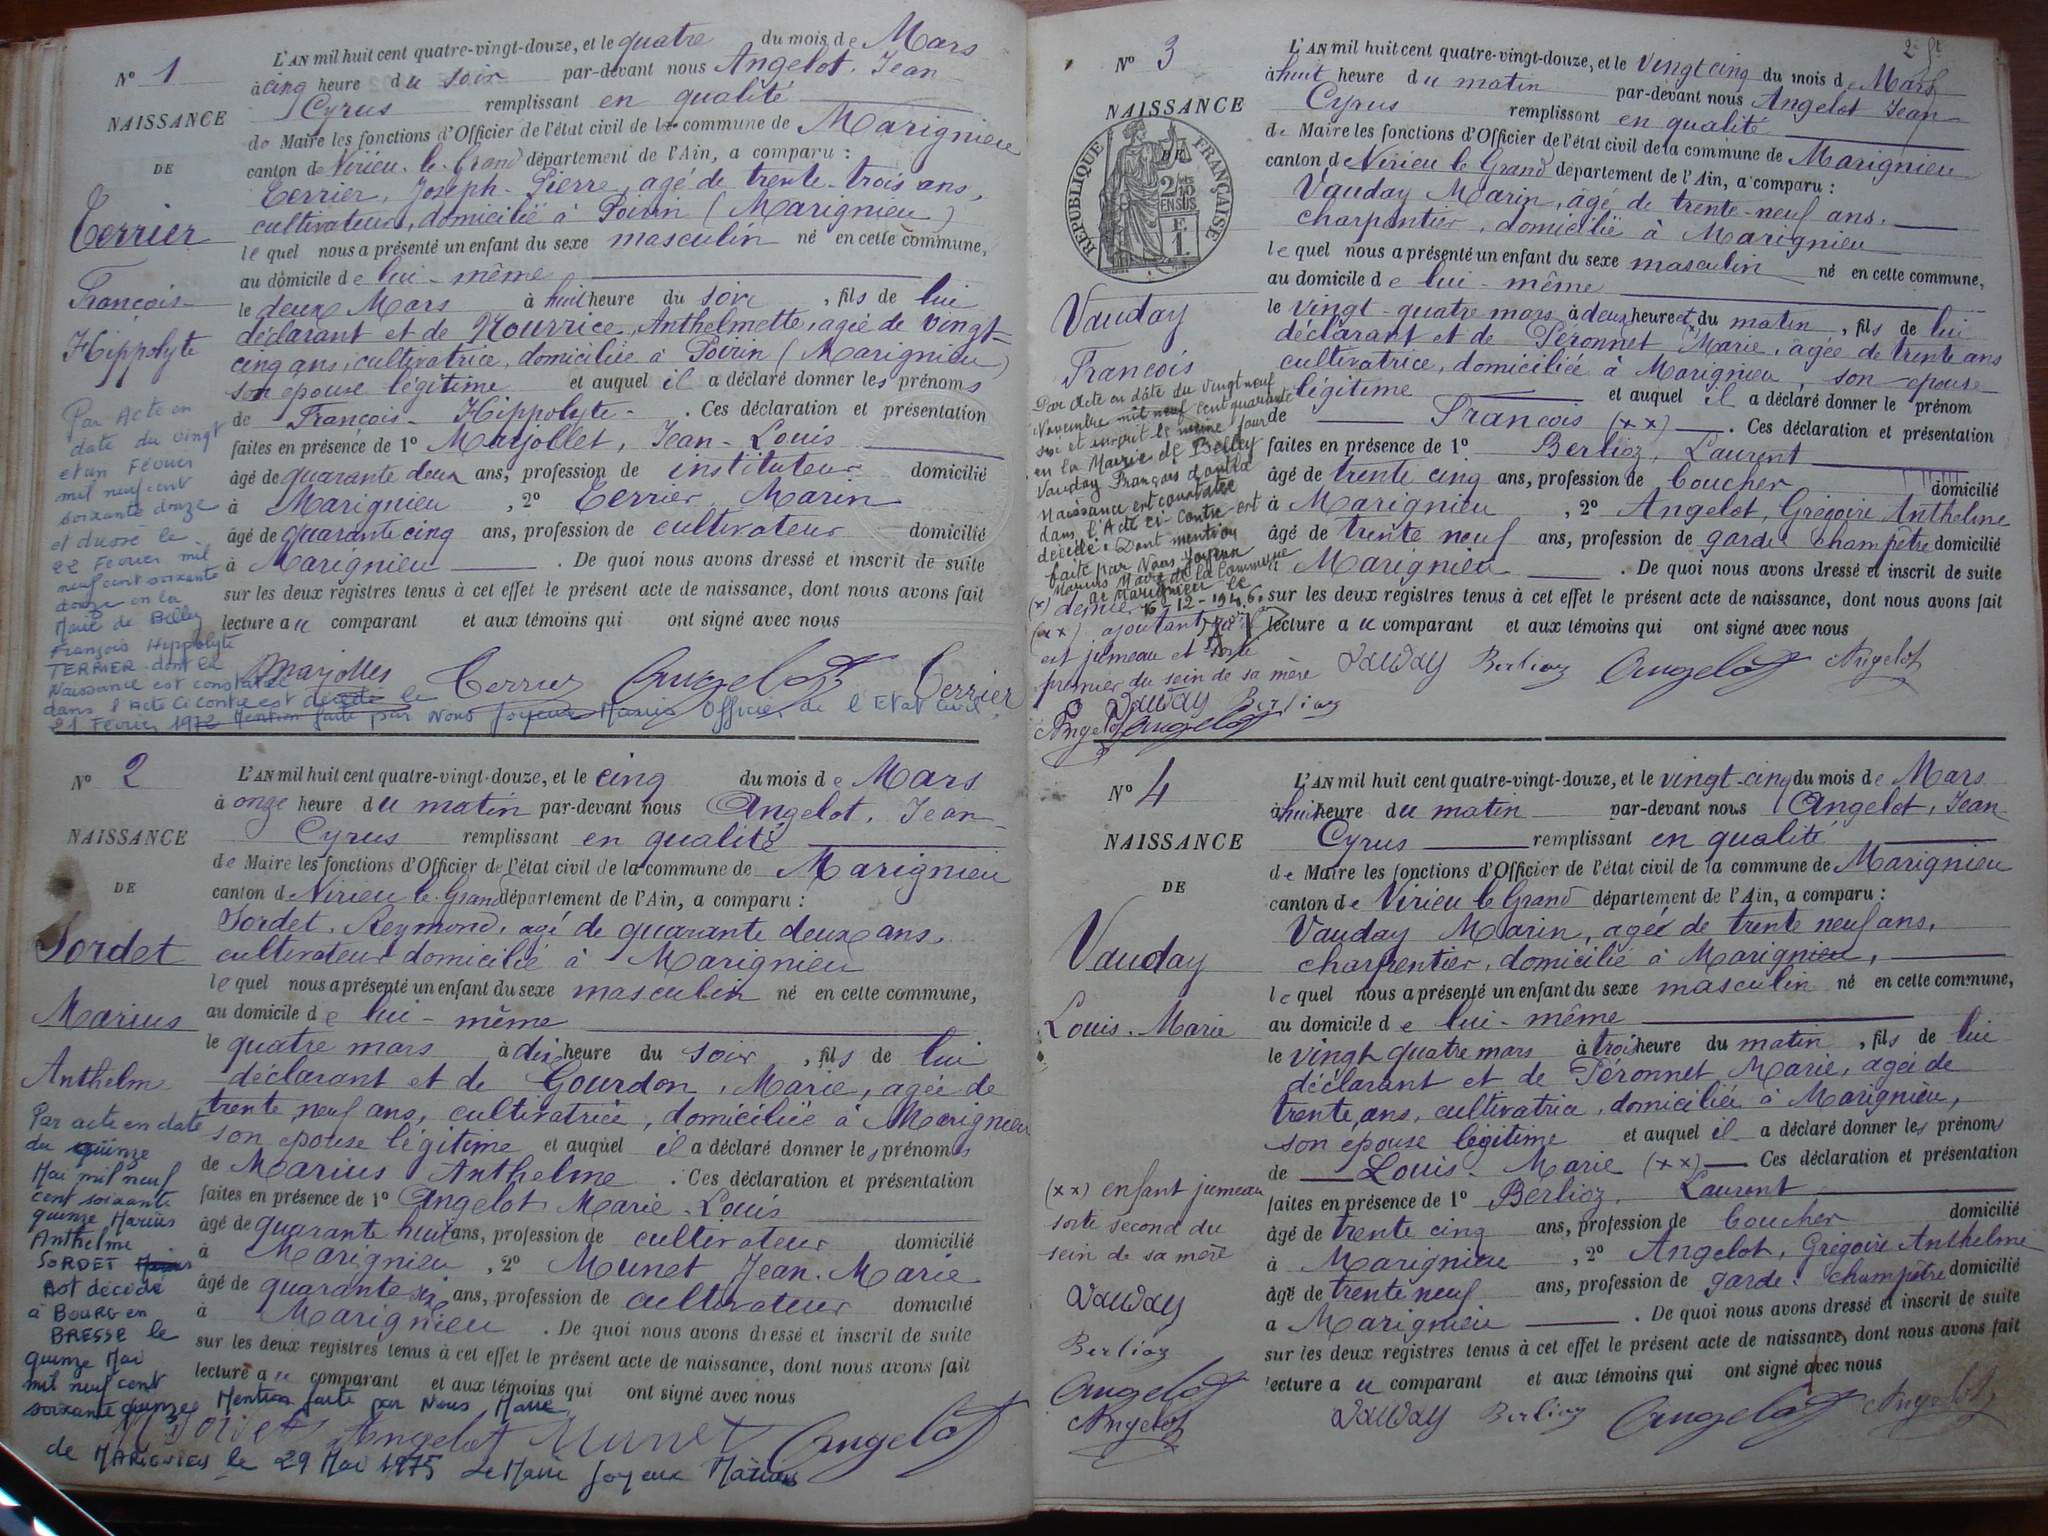 N° 1
NAISSANCE
DE
Terrier
François
Hippolyte
L'AN mil huit cent quatre-vingt-douze, et le quatre du mois de Mars
à cinq heure du soir par-devant nous Angelot, Jean
Cyrus remplissant en qualité
de Maire les fonctions d'Officier de l'état civil de la commune de Marignieu
canton de Virieu-le-Grand département de l'Ain, a comparu :
Terrier, Joseph-Pierre, agé de trente-trois ans,
cultivateur, domicilié à Poirin (Marignieu)
lequel nous a présenté un enfant du sexe masculin né en cette commune,
au domicile de lui-même
le deux Mars à huit heure du soir, fils de lui
déclarant et de Nourrice, Anthelmette, agée de vingt-
cinq ans, cultivatrice, domiciliée à Poirin (Marignieu)
son epouse légitime et auquel il a déclaré donner les prénoms
de François-Hippolyte. Ces déclaration et présentation
faites en présence de 1° Marjollet, Jean-Louis
âgé de quarante deux ans, profession de instituteur domicilié
à Marignieu, 2° Terrier, Marin
âgé de quarante cinq ans, profession de cultivateur domicilié
à Marignieu. De quoi nous avons dressé et inscrit de suite
sur les deux registres tenus à cet effet le présent acte de naissance, dont nous avons fait
lecture au comparant et aux témoins qui ont signé avec nous
Marjollet Terrier Angelot Terrier
Par Acte en
date du vingt
et un Février
mil neuf cent
soixante douze
et dressé le
22 Février mil
neuf cent soixante
douze en la
Mairie de Belley
François Hippolyte
TERRIER dont la
Naissance est constatée
dans l'Acte Ci contre est décédé le
21 Février 1972 Mention faite par Nous Joyeux Marius Officier de l'Etat Civil
N° 2
NAISSANCE
DE
Sordet
Marius
Anthelm
L'AN mil huit cent quatre-vingt-douze, et le cinq du mois de Mars
à onze heure du matin par-devant nous Angelot, Jean-
Cyrus remplissant en qualité
de Maire les fonctions d'Officier de l'état civil de la commune de Marignieu
canton de Virieu le Grand département de l'Ain, a comparu :
Sordet, Reymond, agé de quarante deux ans,
cultivateur domicilié à Marignieu
lequel nous a présenté un enfant du sexe masculin né en cette commune,
au domicile de lui-même
le quatre mars à dix heure du soir, fils de lui
déclarant et de Gourdon, Marie, agée de
trente neuf ans, cultivatrice, domiciliée à Marignieu
son epouse légitime et auquel il a déclaré donner les prénoms
de Marius Anthelme. Ces déclaration et présentation
faites en présence de 1° Angelot Marie-Louis
âgé de quarante huit ans, profession de cultivateur domicilié
à Marignieu, 2° Munet Jean-Marie
âgé de quarante six ans, profession de cultivateur domicilié
à Marignieu. De quoi nous avons dressé et inscrit de suite
sur les deux registres tenus à cet effet le présent acte de naissance, dont nous avons fait
lecture au comparant et aux témoins qui ont signé avec nous
Sordet Angelot Munet Angelot
Par acte en date
du quinze
Mai mil neuf
cent soixante
quinze Marius
Anthelme
SORDET
est décédé
à BOURG en
BRESSE le
quinze Mai
mil neuf cent
soixante quinze Mention faite par Nous Maire
de MARIGNIEU le 29 Mai 1975 Le Maire Joyeux Marius
2e ft
N° 3
NAISSANCE
DE
RÉPUBLIQUE FRANÇAISE
2/10
EN SUS
F.
1.
Vauday
François
L'AN mil huit cent quatre-vingt-douze, et le vingt cinq du mois de Mars
à huit heure du matin par-devant nous Angelot Jean
Cyrus remplissant en qualité
de Maire les fonctions d'Officier de l'état civil de la commune de Marignieu
canton de Virieu le Grand département de l'Ain, a comparu :
Vauday Marin, âgé de trente-neuf ans,
charpentier, domicilié à Marignieu
lequel nous a présenté un enfant du sexe masculin né en cette commune,
au domicile de lui-même
le vingt-quatre mars à deux heure et du matin, fils de lui
déclarant et de Péronnet Marie, agée de trente ans
cultivatrice, domiciliée à Marignieu son epouse
légitime et auquel il a déclaré donner le prénom
de François (xx). Ces déclaration et présentation
faites en présence de 1° Berlioz, Laurent
âgé de trente cinq ans, profession de boucher domicilié
à Marignieu, 2° Angelot, Grégoire Anthelme
âgé de trente neuf ans, profession de garde champêtre domicilié
à Marignieu. De quoi nous avons dressé et inscrit de suite
sur les deux registres tenus à cet effet le présent acte de naissance, dont nous avons fait
lecture au comparant et aux témoins qui ont signé avec nous
Vauday Berlioz Angelot Angelot
Par Acte en date du vingt neuf
Novembre mil neuf cent quarante
six et inscrit le même jour
en la Mairie de Belley
Vauday François dont la
Naissance est constatée
dans l'Acte Ci-Contre est
décédé. Dont mention
faite par Nous Joyeux
Marius Maire de la Commune
de Marignieu le
16-12-1946.
(x) dernier
(xx) ajoutant qu'il
est jumeau et sorti
premier du sein de sa mère
Vauday Berlioz
Angelot Angelot
N° 4
NAISSANCE
DE
Vauday
Louis-Marie
L'AN mil huit cent quatre-vingt-douze, et le vingt-cinq du mois de Mars
à huit heure du matin par-devant nous Angelot, Jean
Cyrus remplissant en qualité
de Maire les fonctions d'Officier de l'état civil de la commune de Marignieu
canton de Virieu le Grand département de l'Ain, a comparu :
Vauday Marin, agée de trente neuf ans,
charpentier, domicilié à Marignieu,
lequel nous a présenté un enfant du sexe masculin né en cette commune,
au domicile de lui-même
le vingt quatre mars à trois heure du matin, fils de lui
déclarant et de Péronnet Marie, agée de
trente ans, cultivatrice, domiciliée à Marignieu,
son epouse légitime et auquel il a déclaré donner les prénoms
de Louis-Marie (xx) Ces déclaration et présentation
faites en présence de 1° Berlioz, Laurent
âgé de trente cinq ans, profession de boucher domicilié
à Marignieu, 2° Angelot, Grégoire Anthelme
âgé de trente neuf ans, profession de garde champêtre domicilié
a Marignieu. De quoi nous avons dressé et inscrit de suite
sur les deux registres tenus à cet effet le présent acte de naissance, dont nous avons fait
lecture au comparant et aux témoins qui ont signé avec nous
Vauday Berlioz Angelot Angelot
(xx) enfant jumeau
sorti second du
sein de sa mère
Vauday
Berlioz
Angelot
Angelot